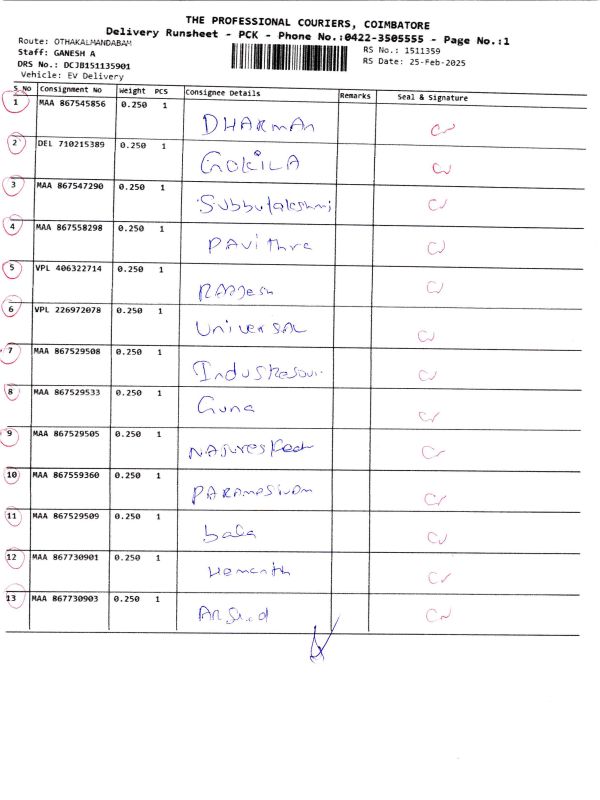 THE PROFESSIONAL COURIERS, COIMBATORE
Delivery Runsheet - PCK - Phone No.:0422-3505555 - Page No.:1
Route: OTHAKALMANDABAM
RS No.: 1511359
Staff: GANESH A
RS Date: 25-Feb-2025
DRS No.: DCJB151135901
Vehicle: EV Delivery
S No Consignment No Weight PCS Consignee Details Remarks Seal & Signature
1 MAA 867545856 0.250 1 DHARMAn
2 DEL 710215389 0.250 1 GOKILA
3 MAA 867547290 0.250 1 Subbulakshmi
4 MAA 867558298 0.250 1 PAvithra
5 VPL 406322714 0.250 1 RAJesh
6 VPL 226972078 0.250 1 UniverSAL
7 MAA 867529508 0.250 1
8 MAA 867529533 0.250 1 Guna
9 MAA 867529505 0.250 1
10 MAA 867559360 0.250 1 PARAMASIVAM
11 MAA 867529509 0.250 1 bala
12 MAA 867730901 0.250 1 Hemanth
13 MAA 867730903 0.250 1